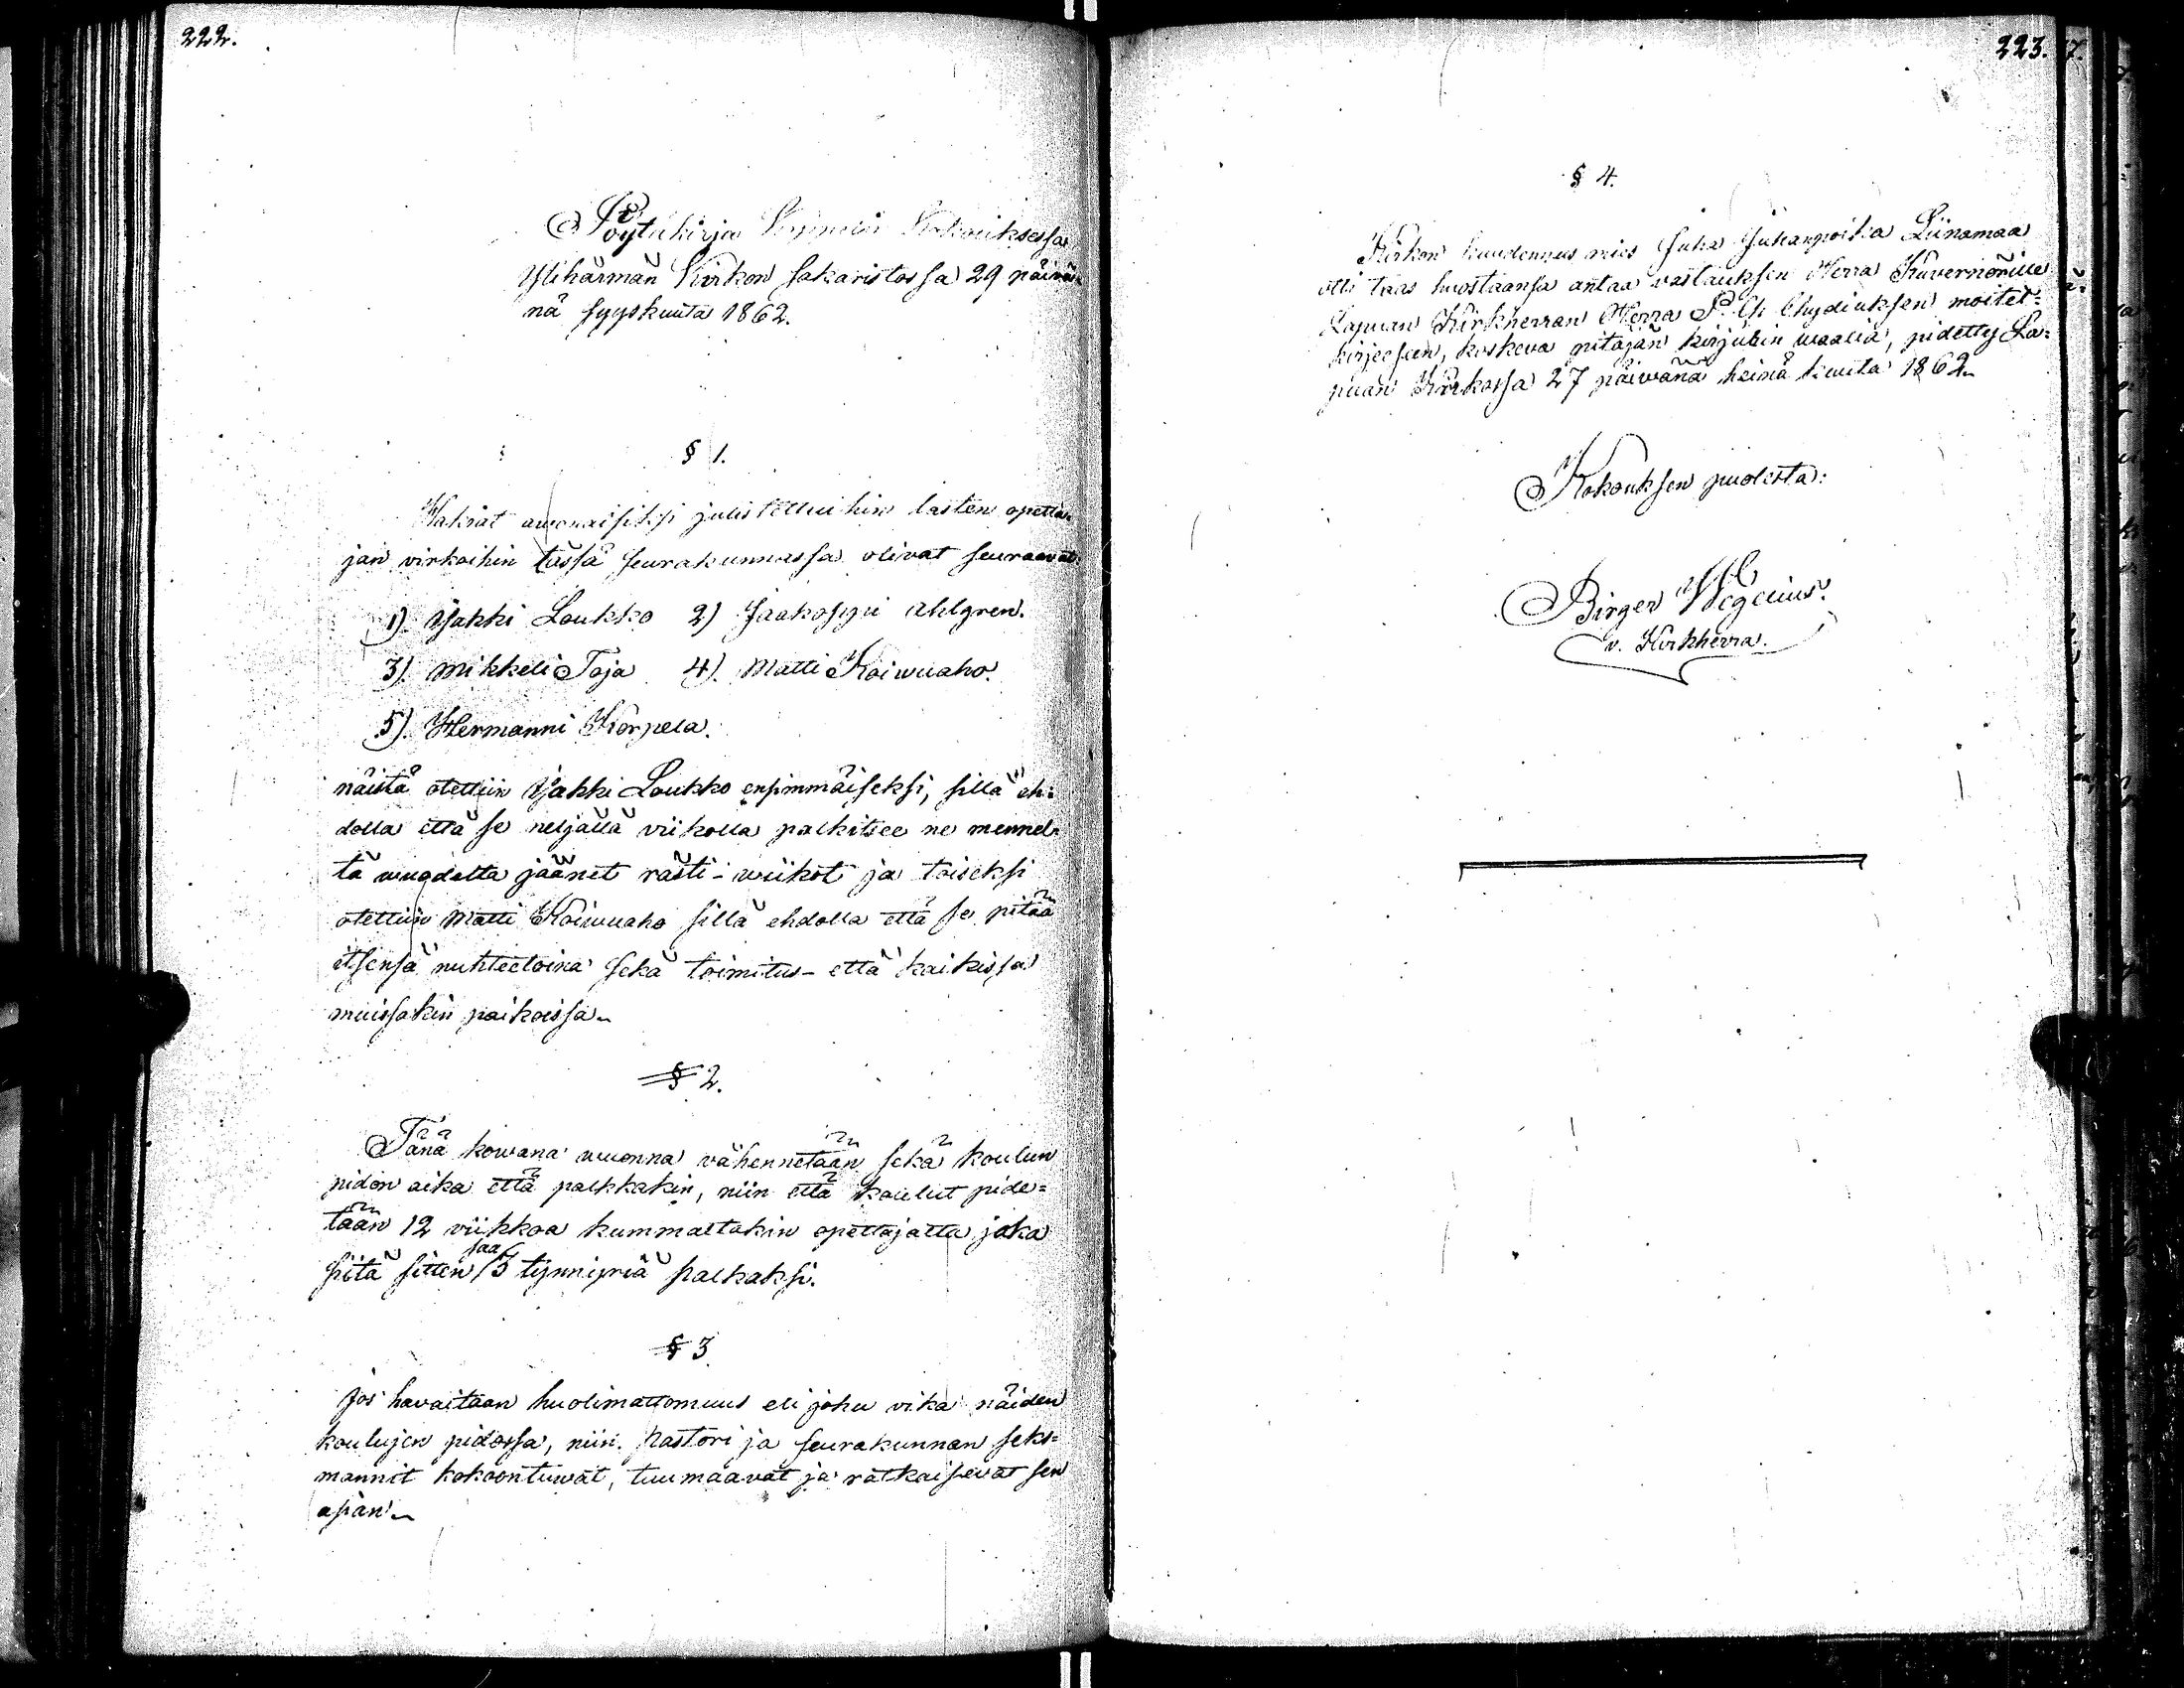 222.
Pöytäkirja Kokouksessa
Ylihärmän Kirkon sakaristossa 29 päivä-
nä syyskuuta 1862.
§ 1.
Hakiat awonaisiksi julistettuihin lasten opetta-
jan virkoihin tässä seurakunnassa olivat seuraavat:
1) Jakki Loukko 2) Jaakoppi Ahlgren.
3) Mikkeli Toja 4) Matti Koiwuaho.
5) Hermanni Korpela.
näistä otettiin Jakki Loukko ensimmäiseksi, sillä eh-
dolla että se neljällä viikolla palkitsee ne mennel-
tä wuodelta jäänet rästi-wiikot ja toiseksi
otettiin Matti Koiwuaho sillä ehdolla että se pitää
itsensä nuhteetoina sekä toimitus- että kaikissa
muissakin paikoissa.
§ 2.
Tänä kowana wuonna vähennetään sekä koulun
pidon aika että palkkakin, niin että koulut pide-
tään 12 viikkoa kummaltakin opettajalta joka
siitä sitten saa 5 tynnyriä palkaksi.
§ 3.
Jos havaitaan huolimattomuus eli joku vika näiden
koulujen pidossa, niin Pastori ja seurakunnan seks-
mannit kokoontuwat, tuumaavat ja ratkaisevat sen
asian.
223.
§ 4.
Kirkon kuudennus mies Juha Juhanpoika Liinamaa
otti taas huostaansa antaa vastauksen Herra Kuvernörille
Lapuan Kirkherran Herra Chydiuksen moitet-
kirjeeseen, koskeva pitäjän kirjurin waalia, pidetty La-
puan Kirkossa 27 päiwänä heinä kuuta 1862.
Kokouksen puolesta:
Birger Wegelius.
v. Kirkherra.